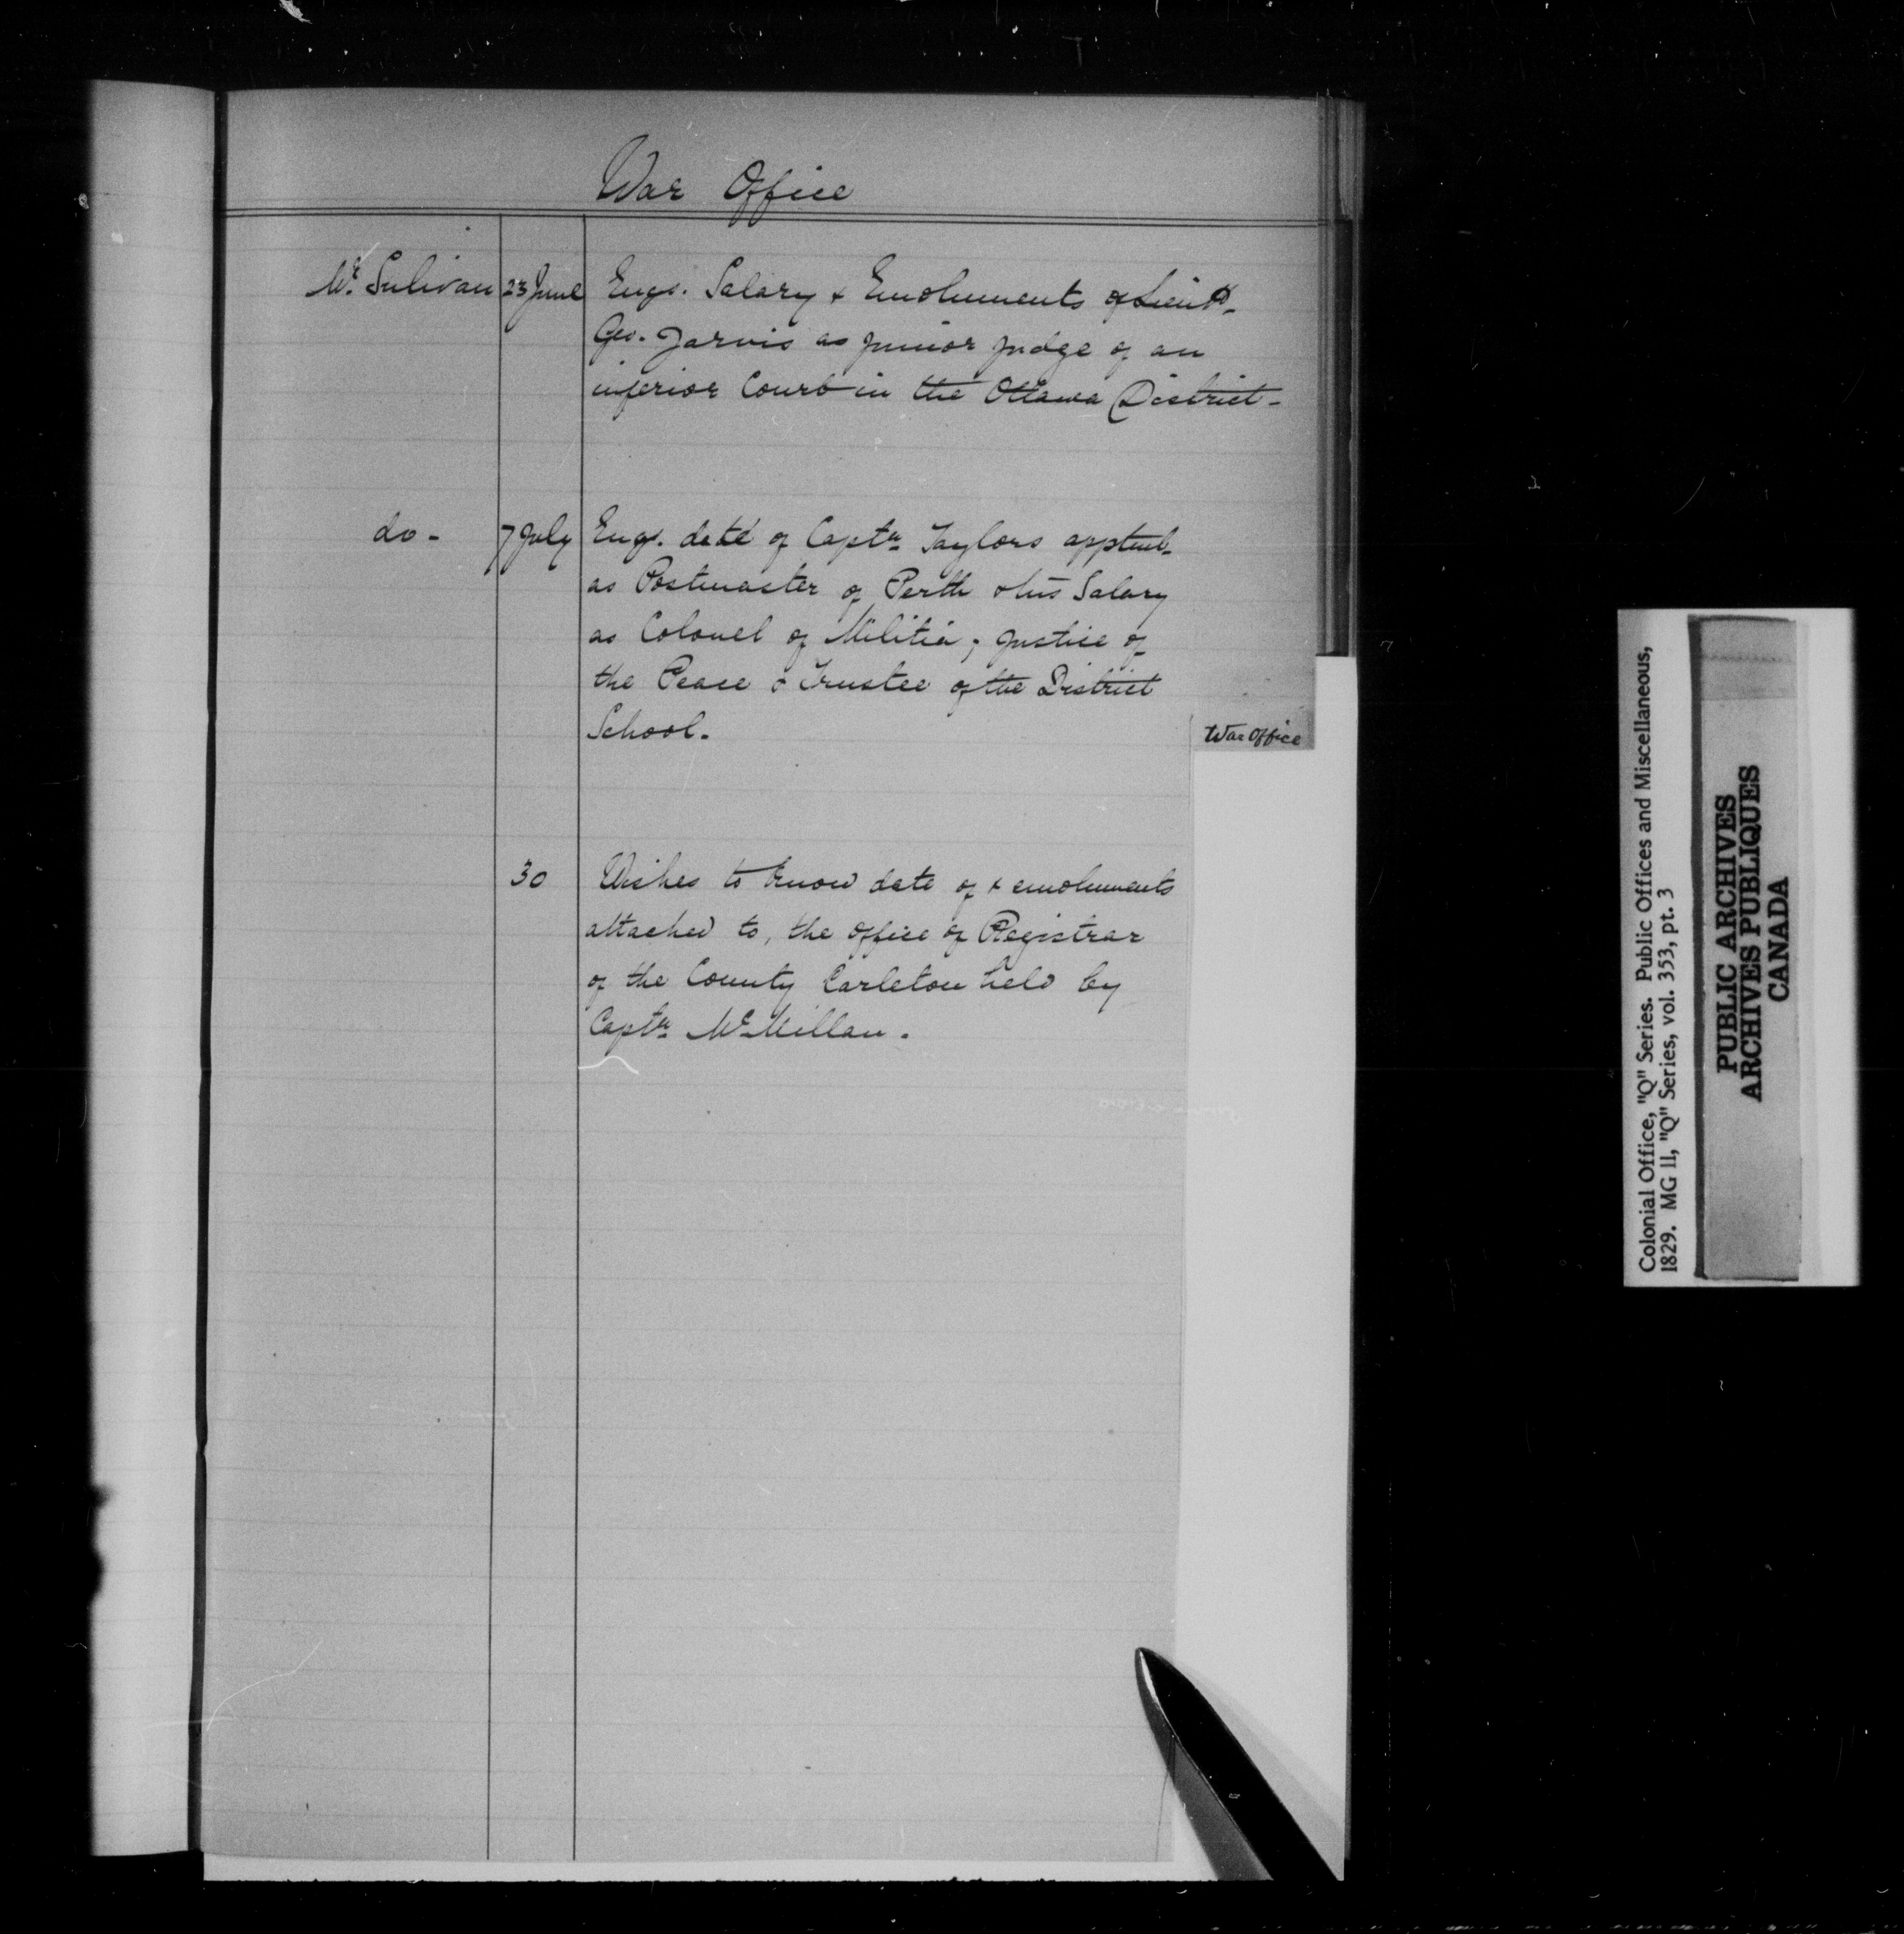 War Office
Mr. Sulivan 23 June Enqs. Salary & Emoluments of Lieut.
Geo. Jarvis as junior judge of an
inferior Court in the Ottawa District -
do - 7 July Enqs. date of Captn Taylors apptmt.
as Postmaster of Perth & his Salary
as Colonel of Militia, Justice of
the Peace & Trustee of the District
School.
War Office
30 Wishes to know date of & emoluments
attached to, the office of Registrar
of the County Carleton held by
Captn McMillan.
Colonial Office, "Q" Series. Public Offices and Miscellaneous,
1829. MG 11, "Q" Series, vol. 353, pt. 3
PUBLIC ARCHIVES
ARCHIVES PUBLIQUES
CANADA